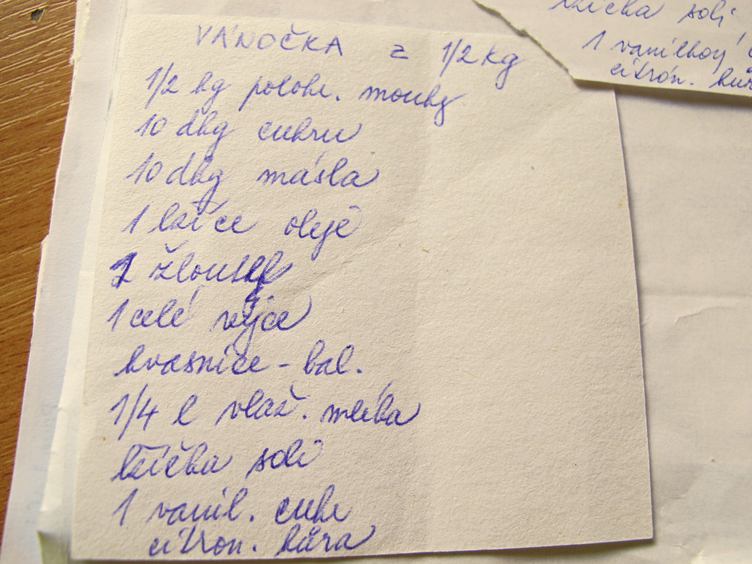 VÁNOČKA z 1/2 kg
1/2 kg polohr. mouky
10 dkg cukru
10 dkg másla
1 lžíce oleje
žloutek
1 celé vejce
kvasnice - bal.
1/4 l vlaž. mléka
lžička soli
1 vanil. cukr
citron. kůra
lžička soli
1 vanilkový
citron. kůra